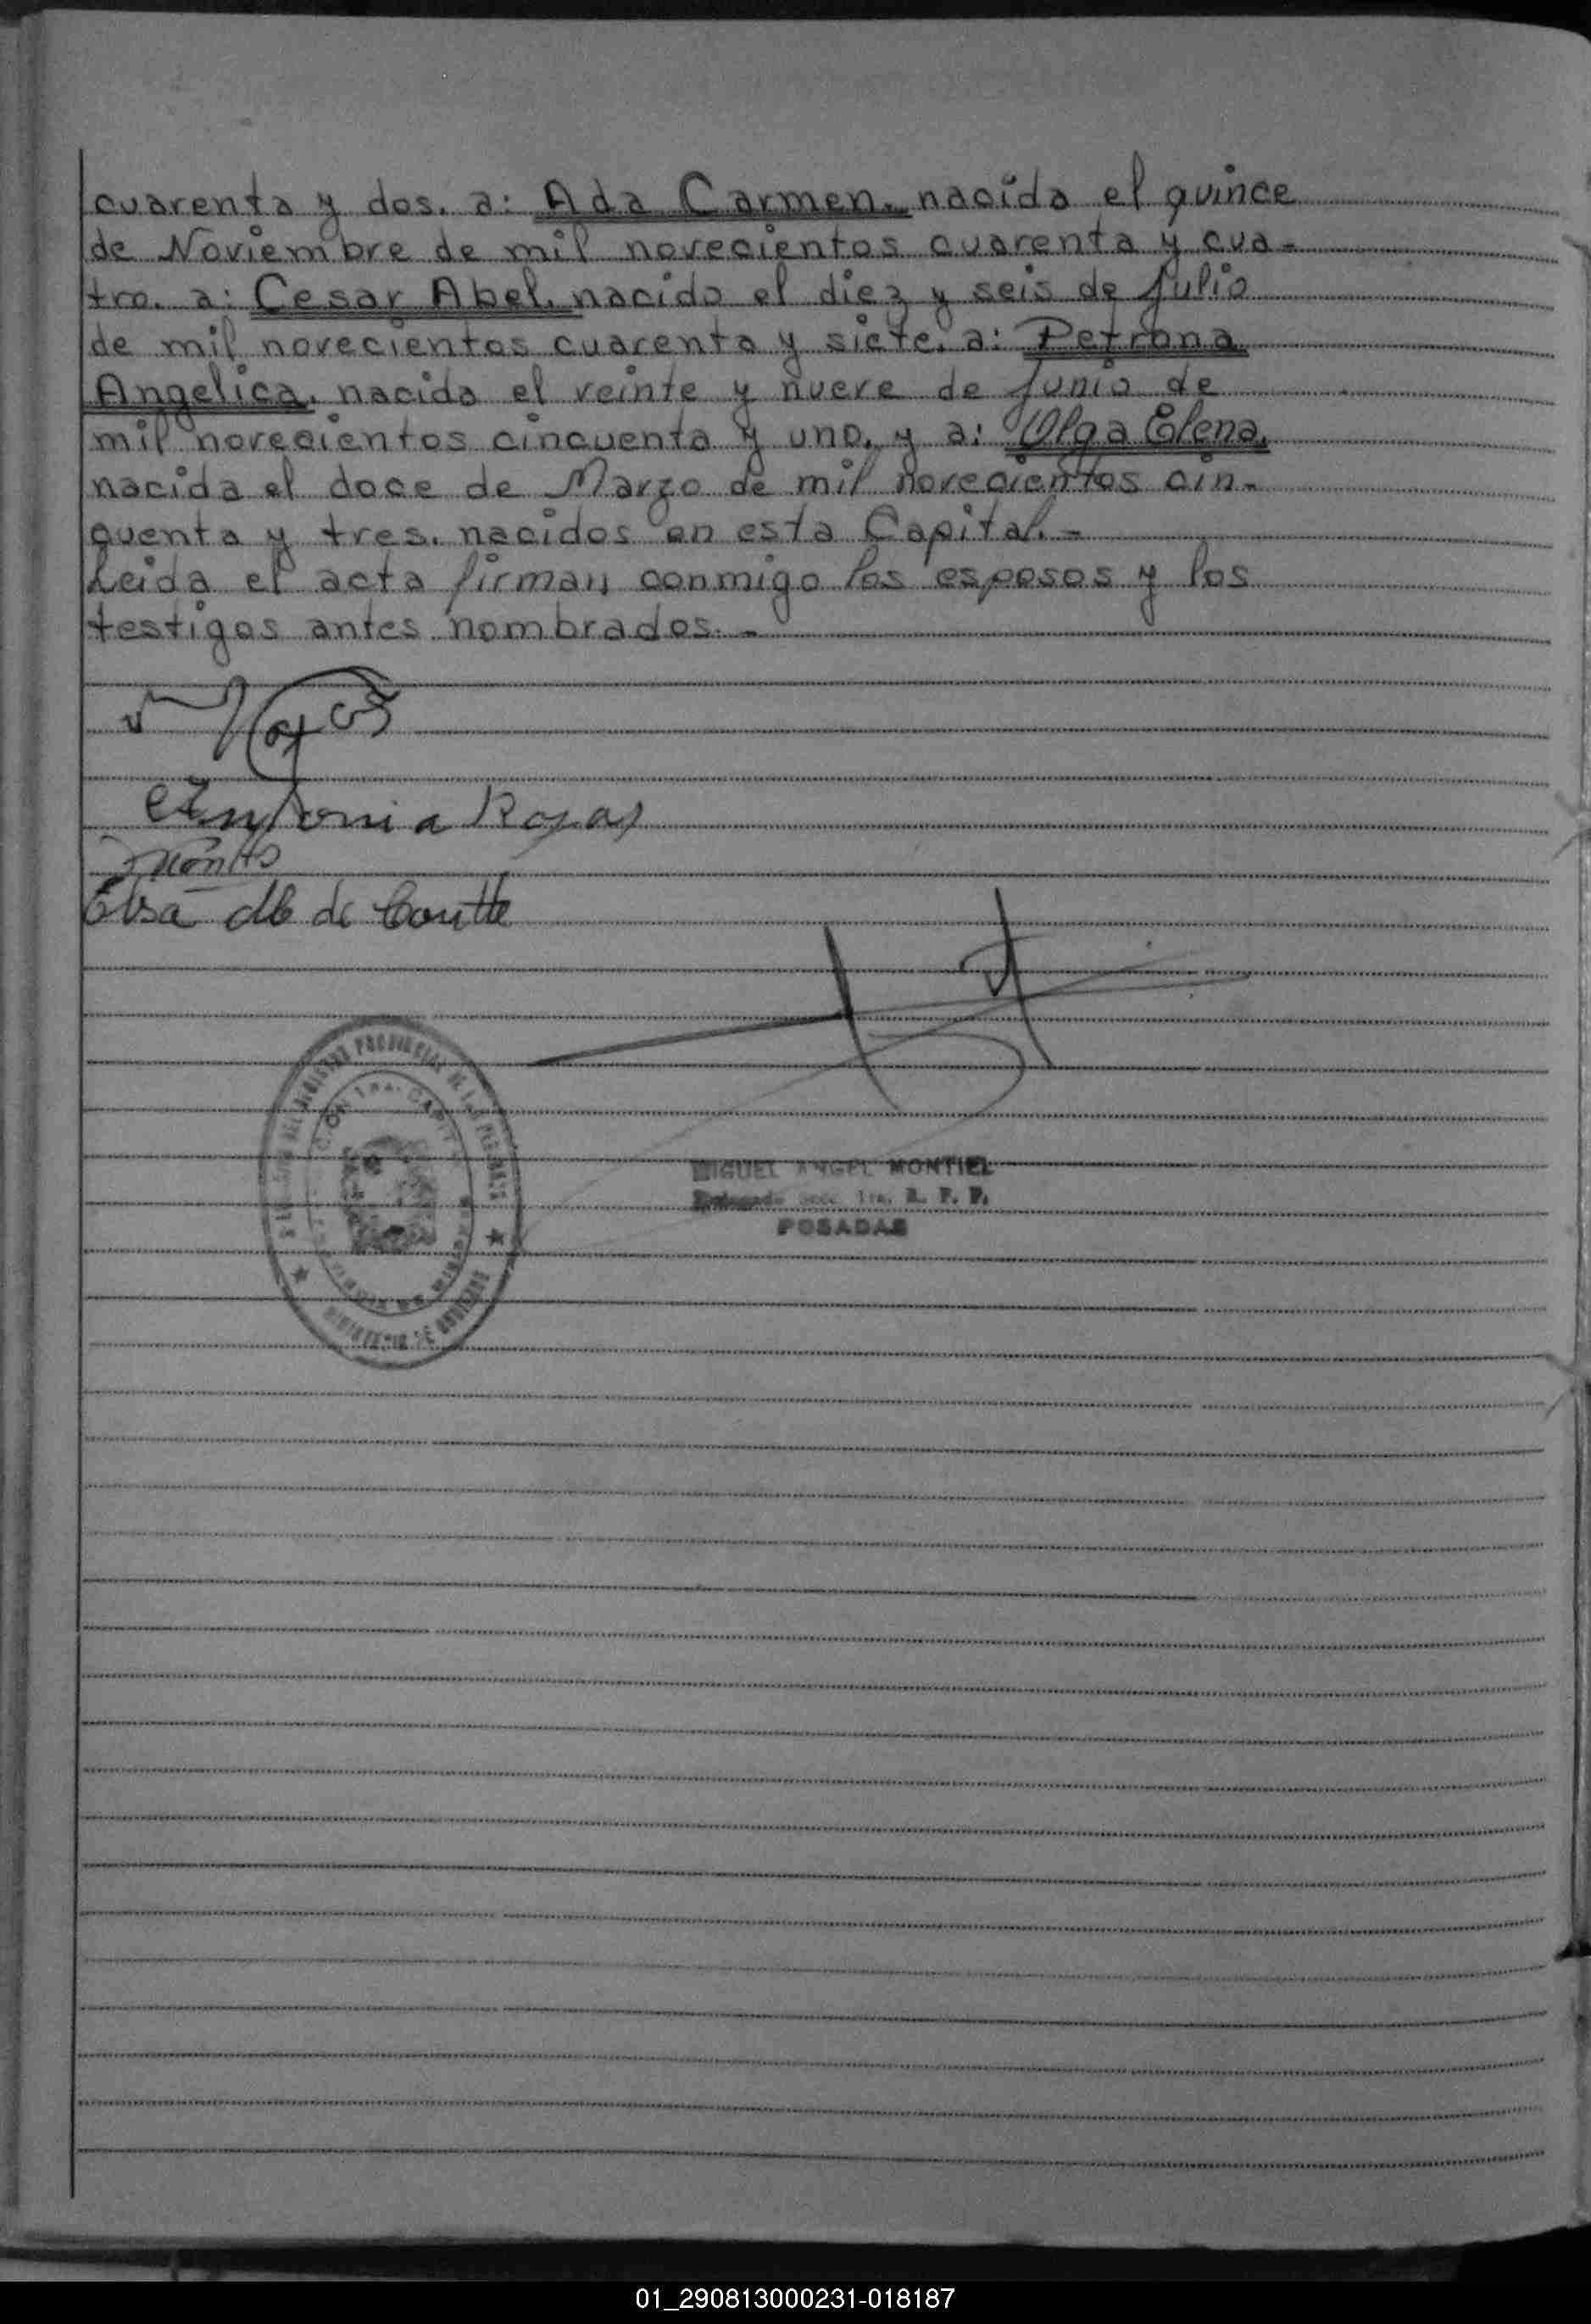 cuarenta y dos. a: Ada Carmen. nacida el quince
de Noviembre de mil novecientos cuarenta y cua-
tro. a: Cesar Abel. nacido el diez y seis de Julio
de mil novecientos cuarenta y siete. a: Petrona
Angelica. nacida el veinte y nueve de Junio de
mil novecientos cincuenta y uno. y a: Olga Elena.
nacida el doce de Marzo de mil novecientos cin-
cuenta y tres. nacidos en esta Capital. -
Leida el acta firman conmigo los esposos y los
testigos antes nombrados. -
Antonia Rojas
Elsa de
REGISTRO PROVINCIAL DE LAS PERSONAS
MIGUEL ANGEL MONTIEL
Delegado Secc. 1ra. R. P. P.
POSADAS
01_290813000231-018187